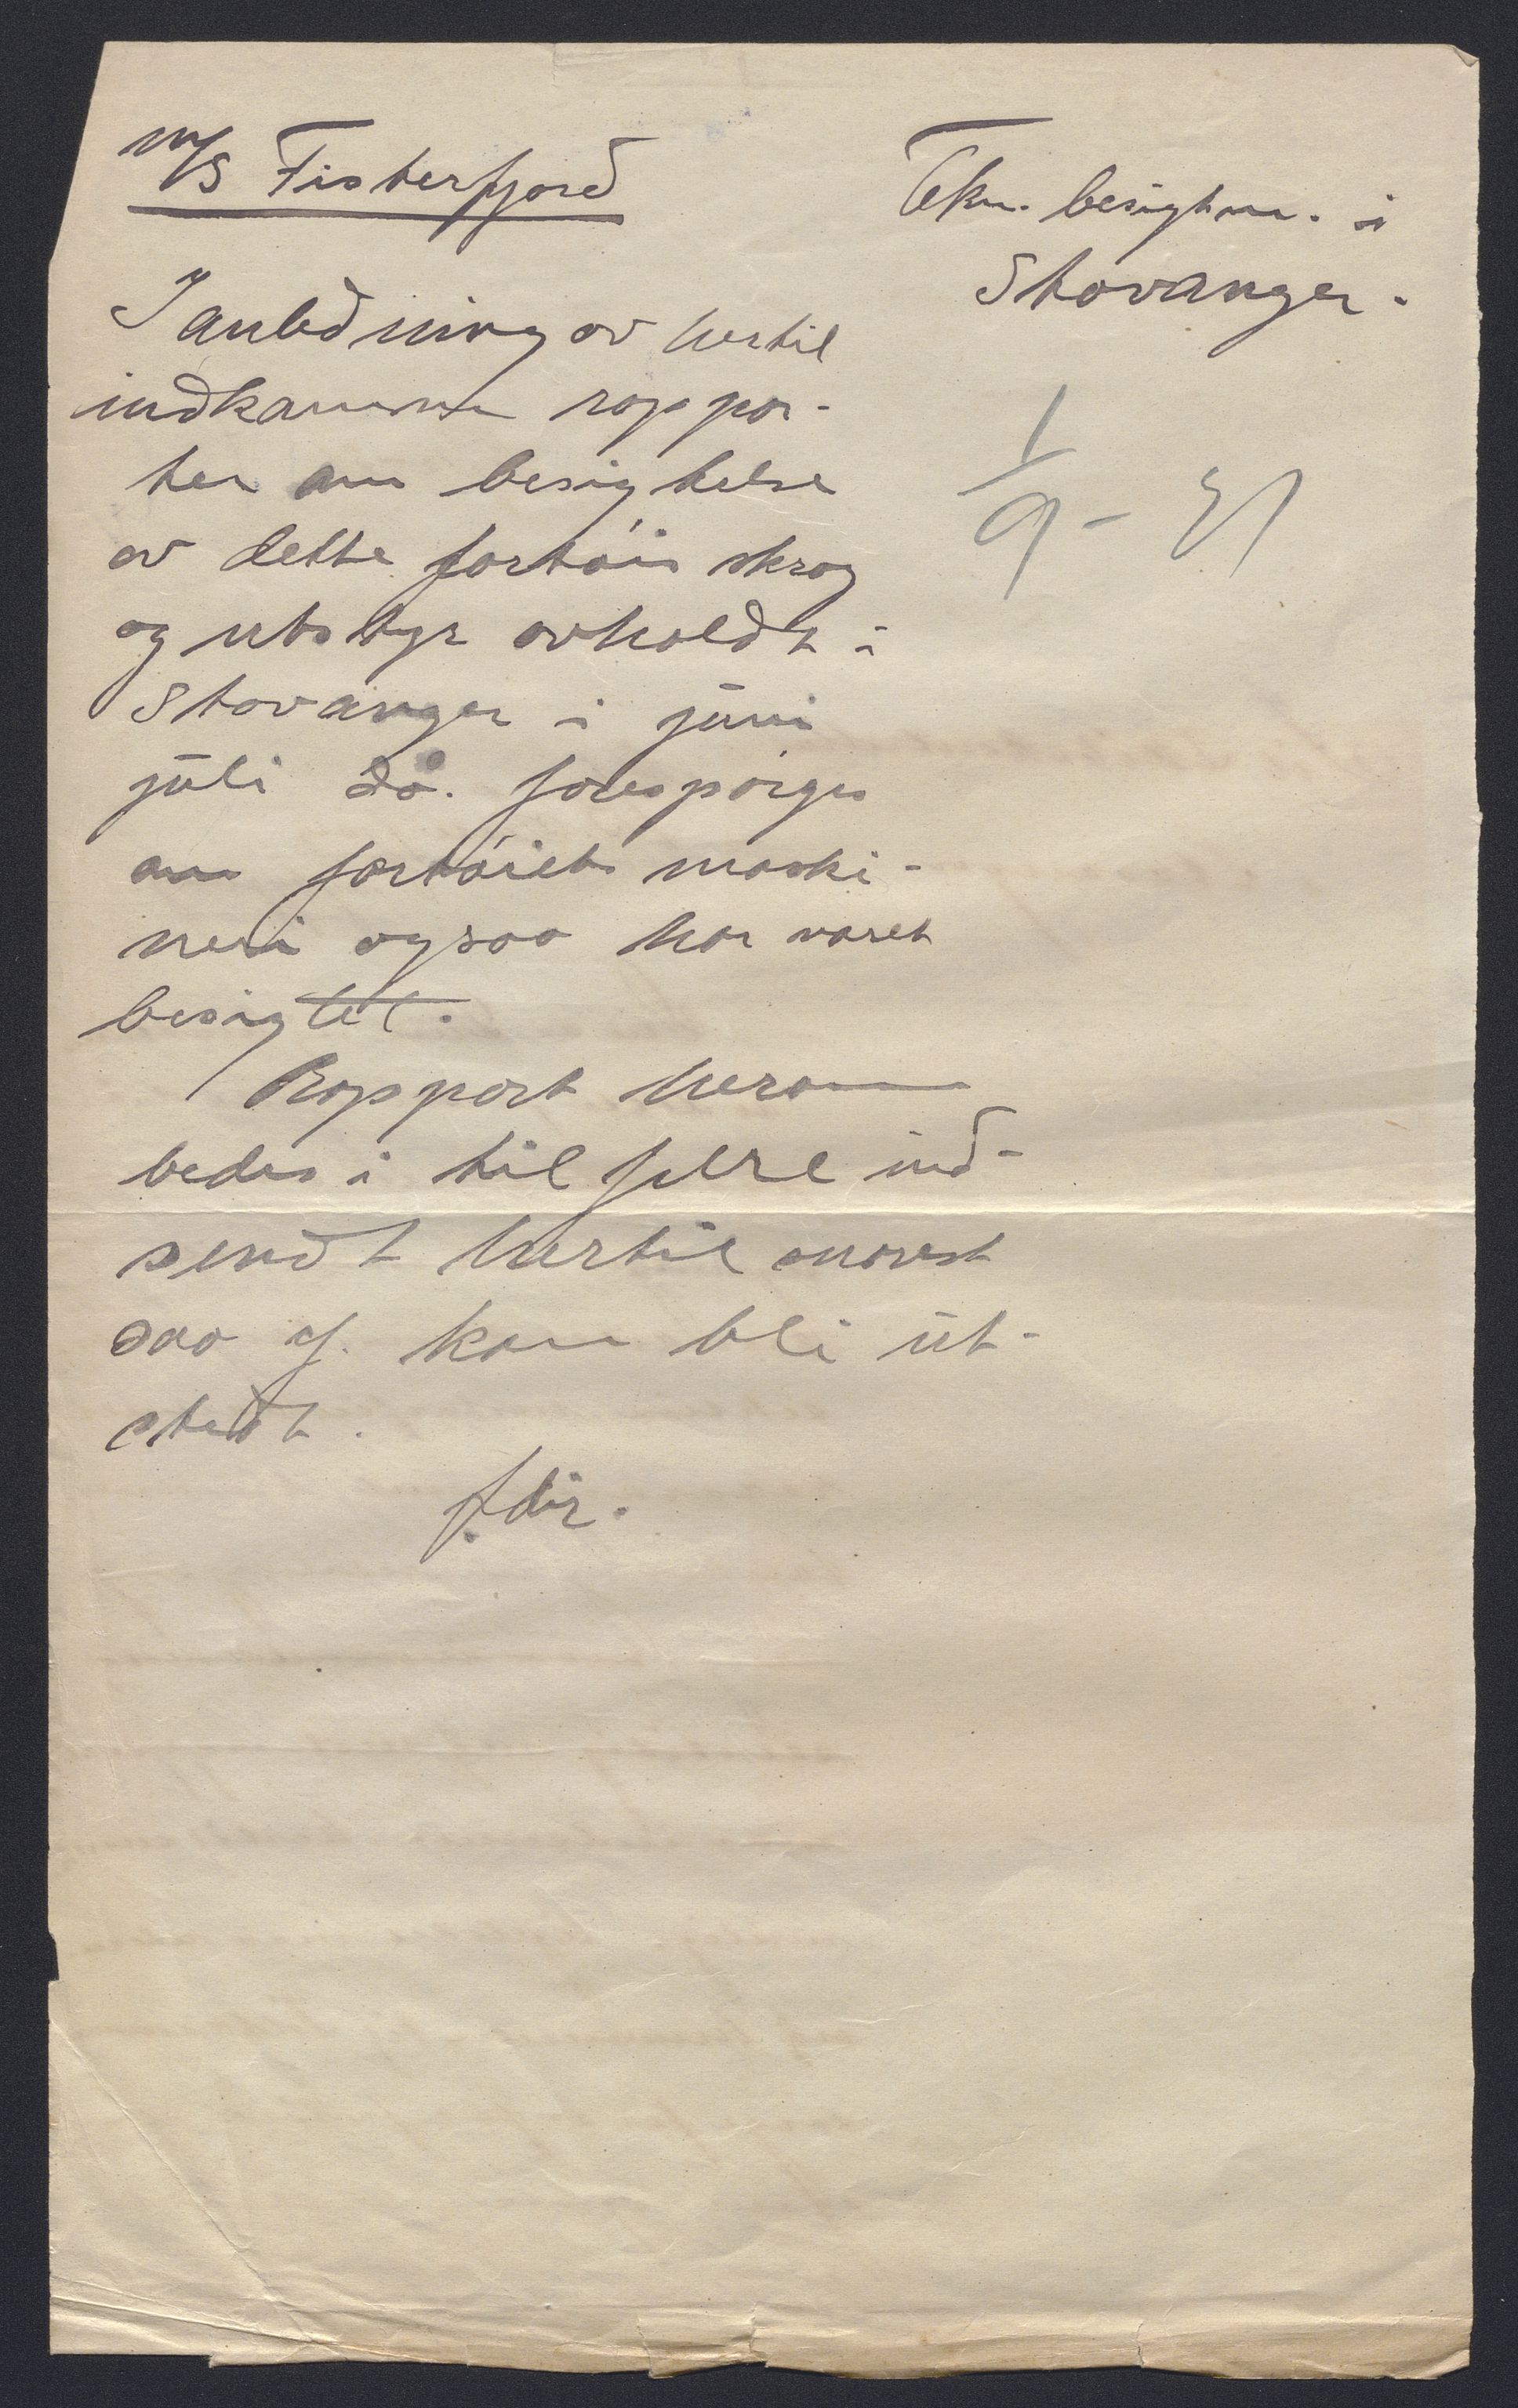 M/S Fisterfjord
Tekn. besigtm. i
Stavanger.
I anledning av hertil
indkomne rappor-
ter om besigtelse
av dette fartøis skrog
og utstyr avholdt i
Stavanger i juni
juli då. forespørges
om fartøiets maski-
neri ogsaa har været
besigtet.
Rapport herom
bedes i tilfelle ind-
sendt hertil snarest
saa cf. kan bli ut-
stedt.
f. dir.
1/9 - 31